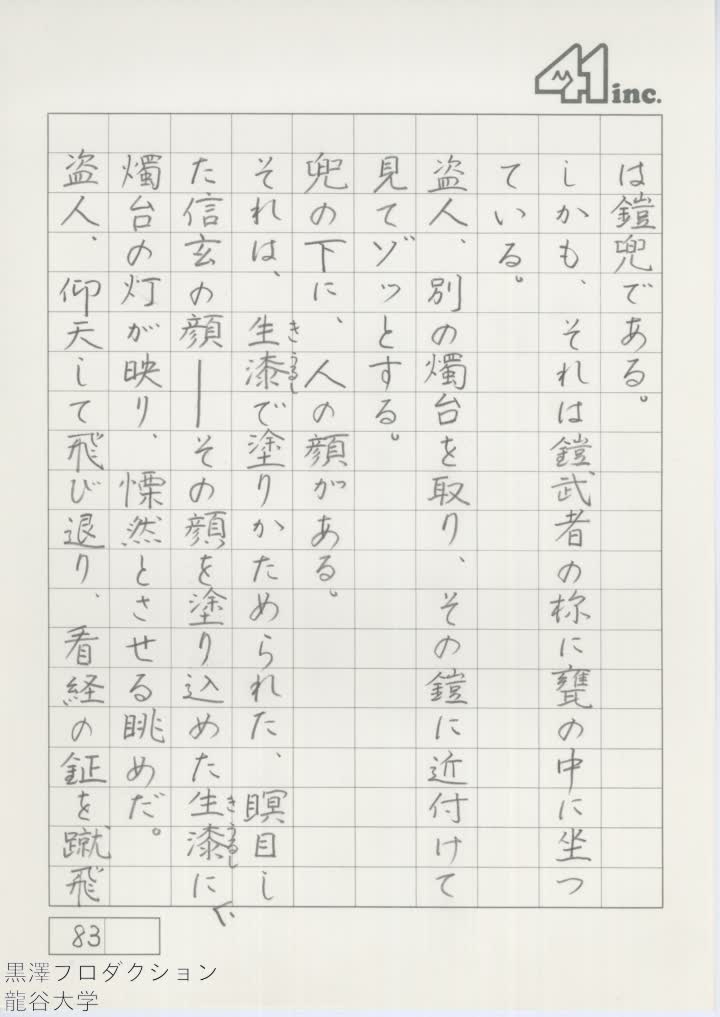 41 inc.
は鎧兜である。
しかも、それは鎧武者の様に甕の中に坐つ
ている。
盗人、別の燭台を取り、その鎧に近付けて
見てゾッとする。
兜の下に、人の顔がある。
それは、生漆で塗りかためられた、瞑目し
きうるし
た信玄の顔―その顔を塗り込めた生漆に、
きうるし
燭台の灯が映り、慄然とさせる眺めだ。
盗人、仰天して飛び退り、看経の鉦を蹴飛
83
黒澤プロダクション
龍谷大学